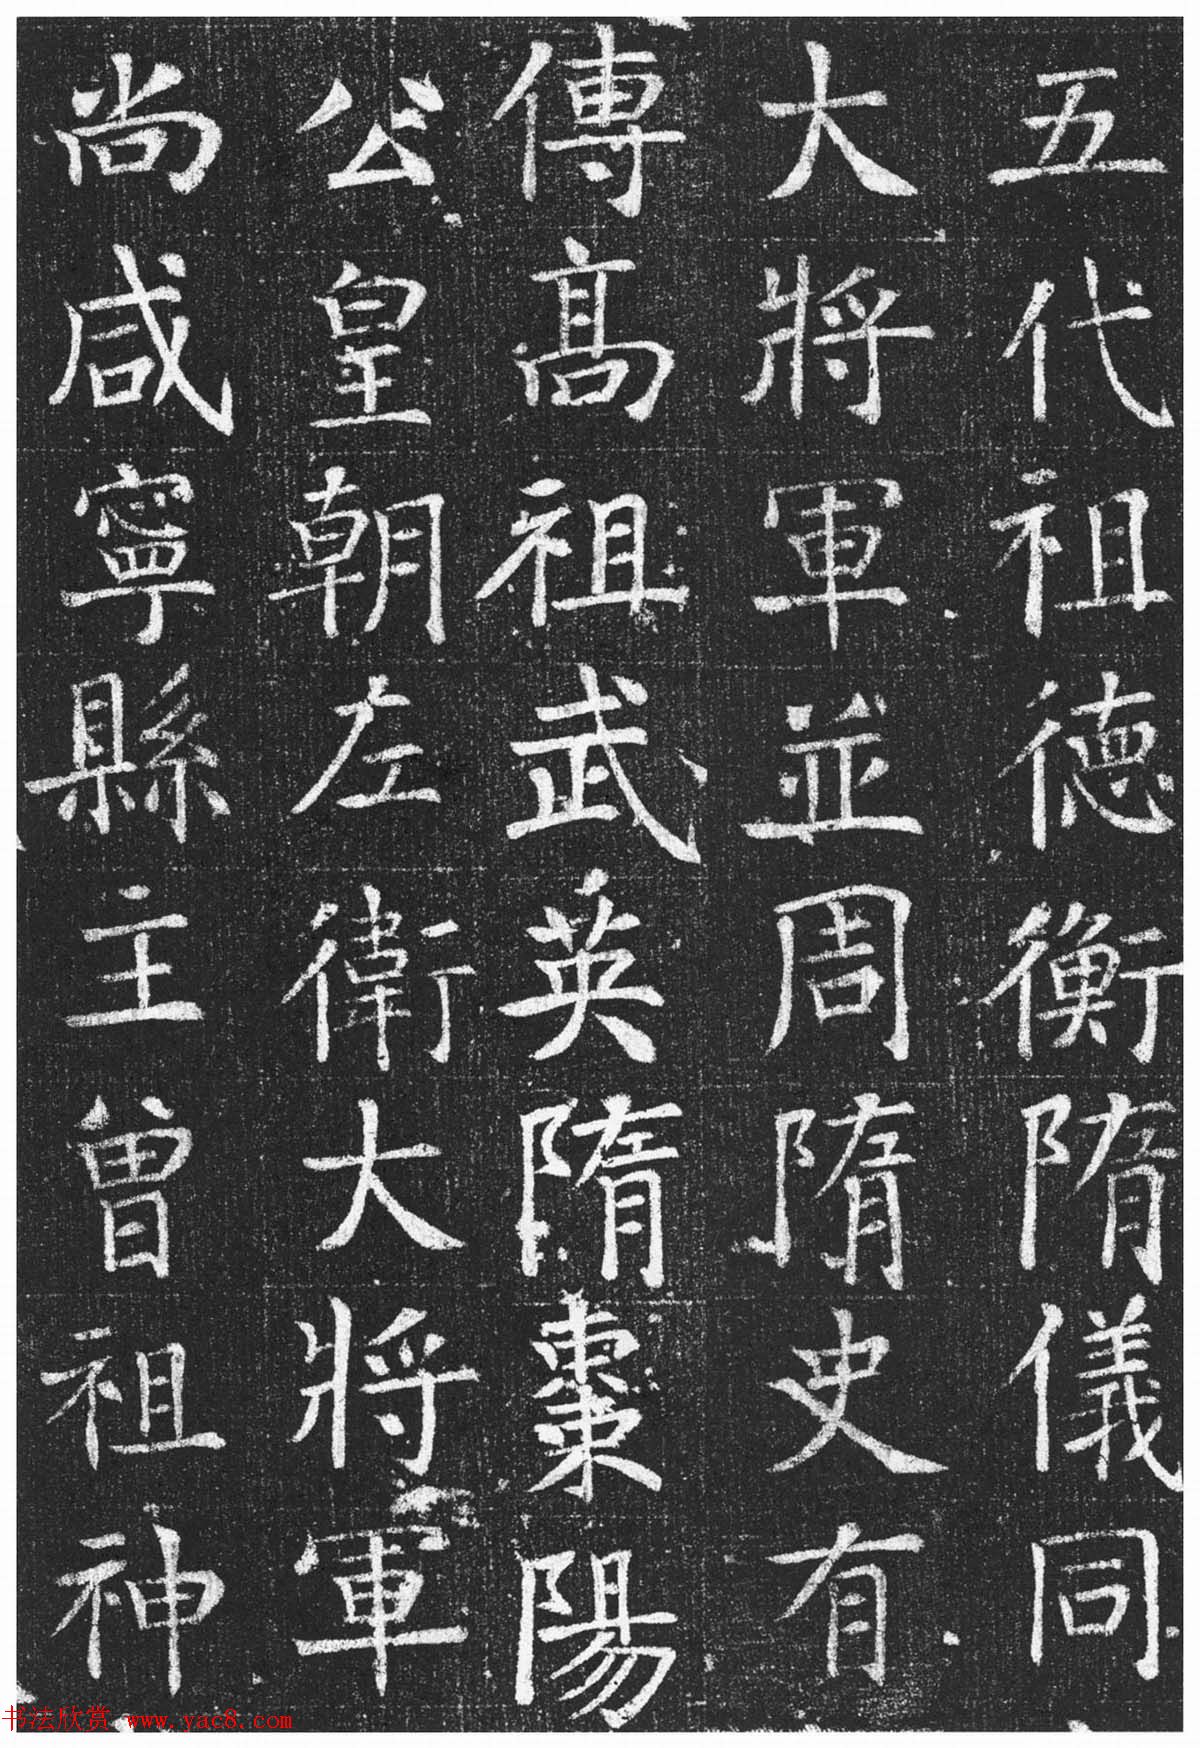 五代祖德衡隋儀同
大將軍並周隋史有
傳高祖武英隋棗陽
公皇朝左衛大將軍
尚咸寧縣主曾祖神
书法欣赏 www.yac8.com